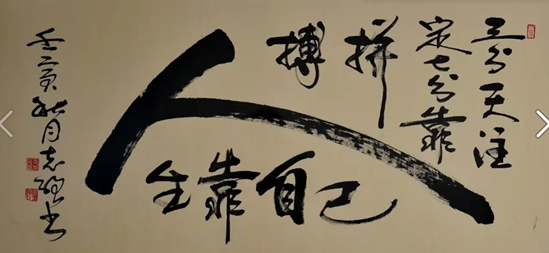 三分天注
定七分靠
拼
搏
人
生靠自己
壬寅秋月志强书